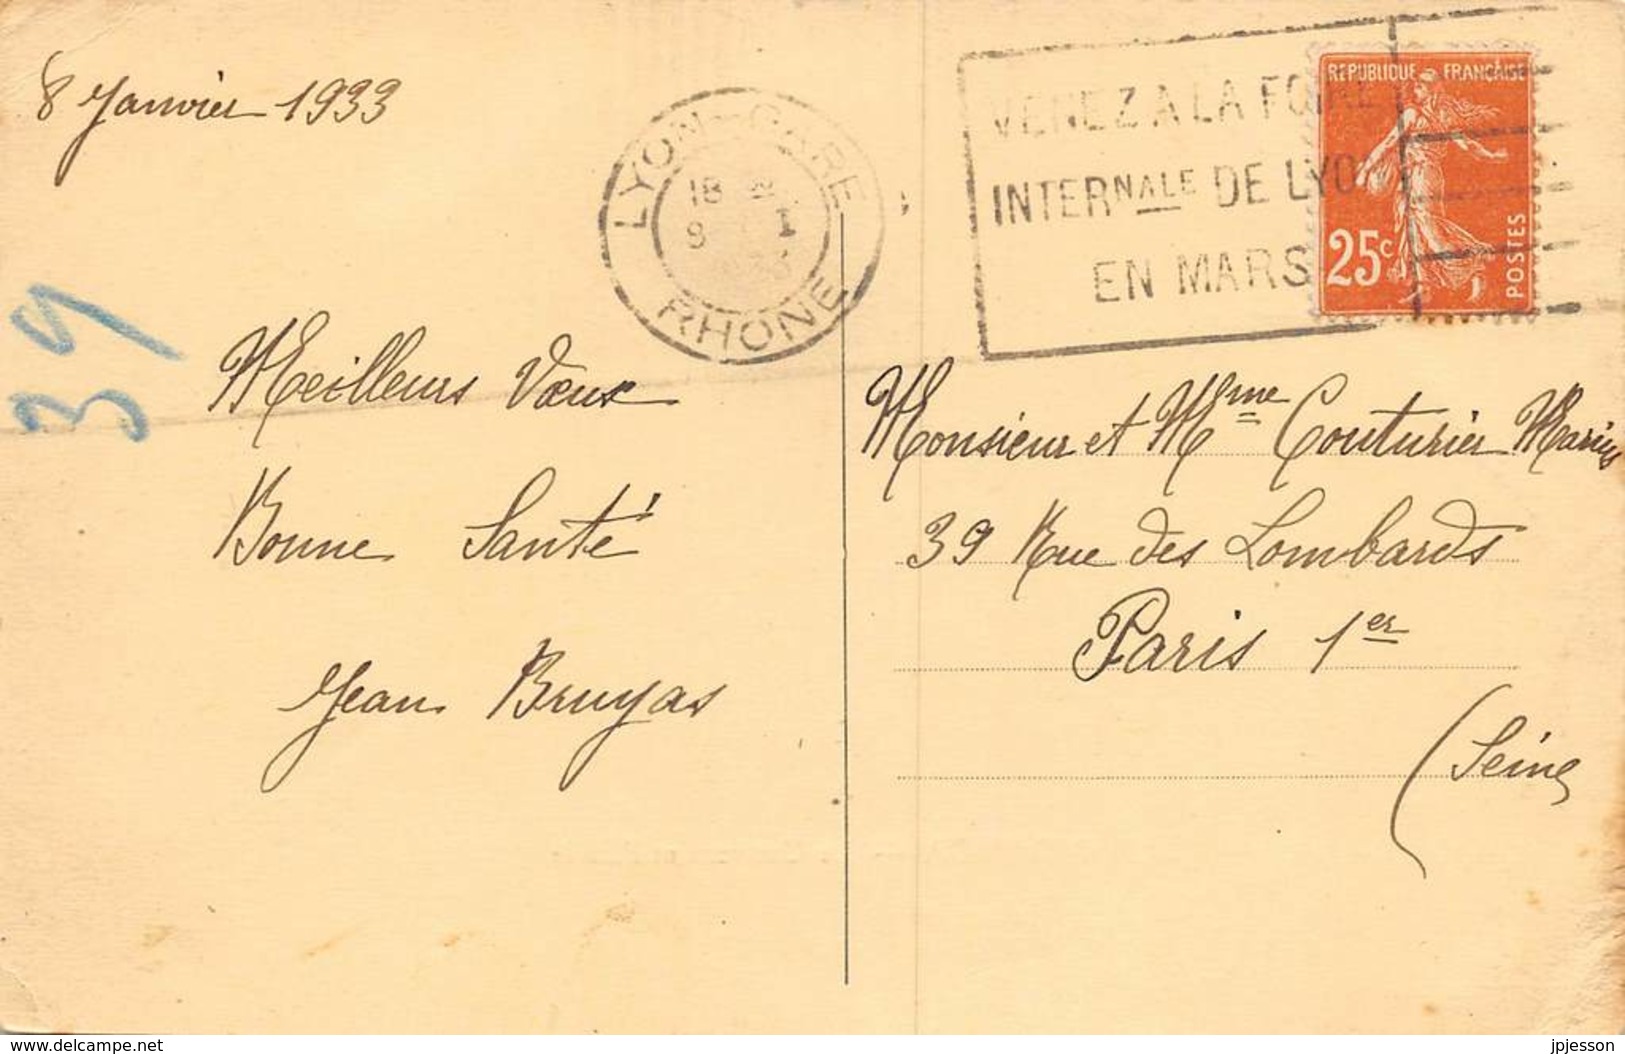 8 Janvier 1933
LYON-GARE
18
RHONE
VENEZ A LA FOIRE
INTERNALE DE LYON
EN MARS
REPUBLIQUE FRANÇAISE
25c
POSTES
39
Meilleurs Vœux
Bonne Santé
Jean Bruyas
Monsieur et Mme Couturier Marius
39 Rue des Lombards
Paris 1er
(Seine
www.delcampe.net
jpjesson